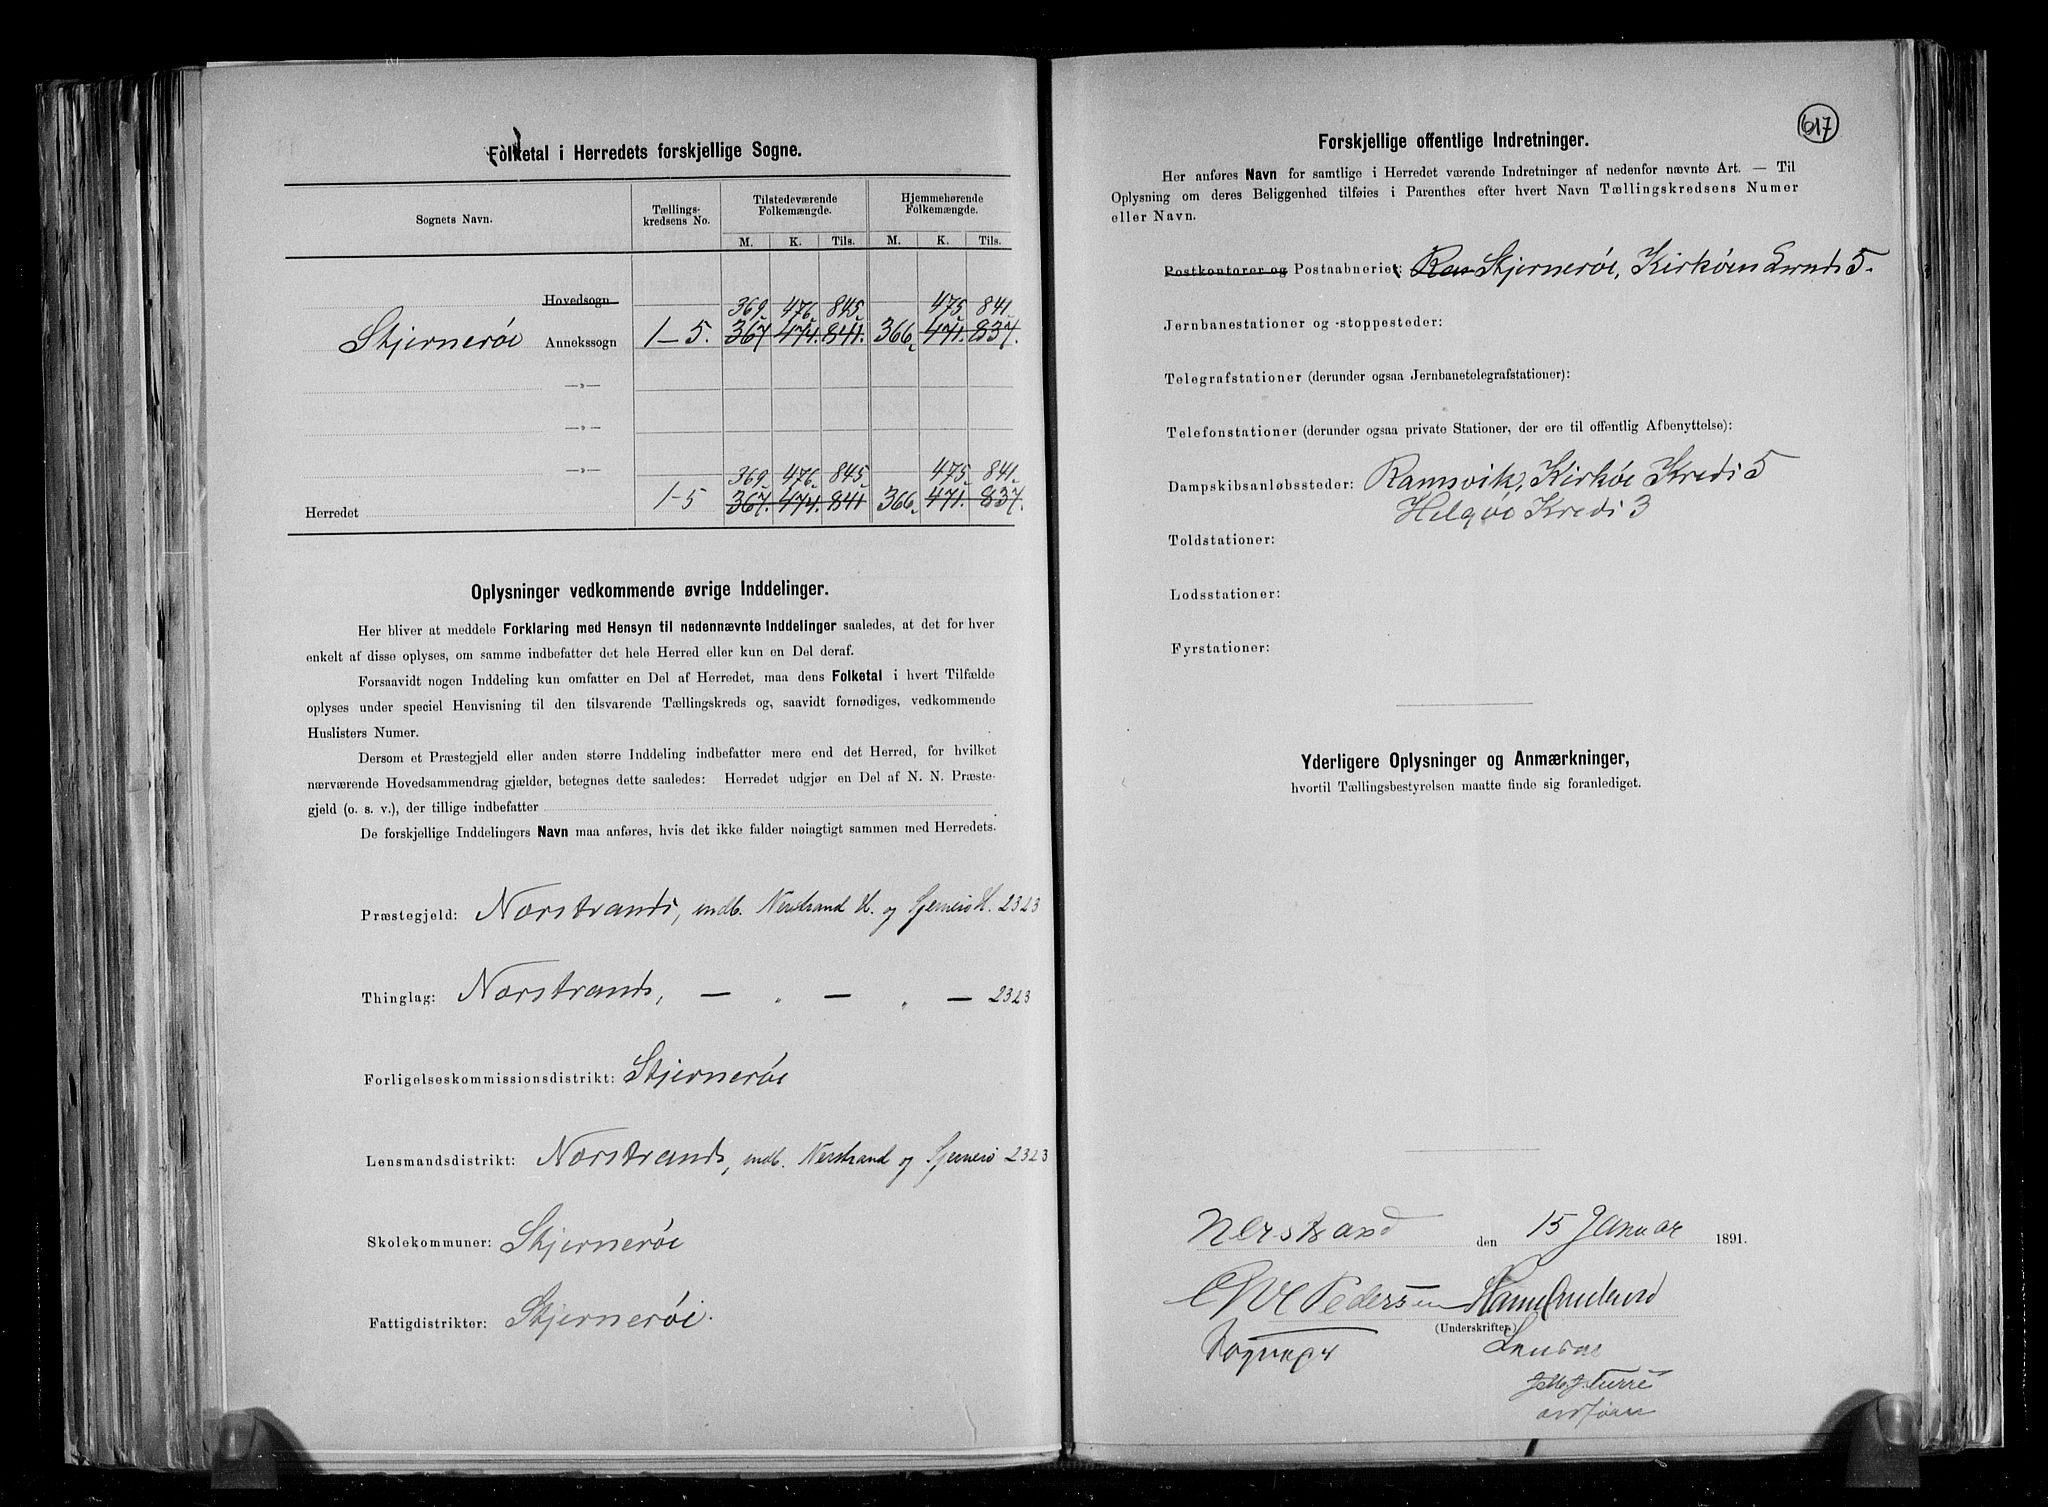 Folketal i Herredets forskjellige Sogne.
Sognets Navn.
Tællings-
kredsens No.
Tilstedeværende
Folkemængde.
Hjemmehørende
Folkemængde.
M. K. Tils. M. K. Tils.
Hovedsogn
369. 476. 845. 475. 841.
Stjernerøe Annekssogn 1-5. 367 474. 841. 366. 471. 837.
—»—
—»—
—»—
369. 476. 845. 475. 841.
Herredet 1-5 367. 474. 841 366. 471. 837.
Oplysninger vedkommende øvrige Inddelinger.
Her bliver at meddele Forklaring med Hensyn til nedennævnte Inddelinger saaledes, at det for hver
enkelt af disse oplyses, om samme indbefatter det hele Herred eller kun en Del deraf.
Forsaavidt nogen Inddeling kun omfatter en Del af Herredet, maa dens Folketal i hvert Tilfælde
oplyses under speciel Henvisning til den tilsvarende Tællingskreds og, saavidt fornødiges, vedkommende
Huslisters Numer.
Dersom et Præstegjeld eller anden større Inddeling indbefatter mere end det Herred, for hvilket
nærværende Hovedsammendrag gjælder, betegnes dette saaledes: Herredet udgjør en Del af N. N. Præste-
gjeld (o. s. v.), der tillige indbefatter
De forskjellige Inddelingers Navn maa anføres, hvis det ikke falder nøiagtigt sammen med Herredets.
Præstegjeld: Nærstrands, indb. Nerstrand H. og Sjernerø H. 2323
Thinglag: Nærstrands, — „ — „ — 2323
Forligelseskommissionsdistrikt: Stjernerøe
Lensmandsdistrikt: Nærstrands, indb. Nerstrand og Sjernerø 2323
Skolekommuner: Stjernerøe
Fattigdistrikter: Stjernerøe.
617
Forskjellige offentlige Indretninger.
Her anføres Navn for samtlige i Herredet værende Indretninger af nedenfor nævnte Art. — Til
Oplysning om deres Beliggenhed tilføies i Parenthes efter hvert Navn Tællingskredsens Numer
eller Navn.
Postkontorer og Postaabnerier: Ram Stjernerøe, Kirkøen 5.
Jernbanestationer og -stoppesteder:
Telegrafstationer (derunder ogsaa Jernbanetelegrafstationer):
Telefonstationer (derunder ogsaa private Stationer, der ere til offentlig Afbenyttelse):
Dampskibsanløbssteder: Ramsvik, Kirkøe Kreds 5
Helgøe Kreds 3
Toldstationer:
Lodsstationer:
Fyrstationer:
Yderligere Oplysninger og Anmærkninger,
hvortil Tællingsbestyrelsen maatte finde sig foranlediget.
Nerstrand den 15 Januar 1891.
Pedersen
(Underskrifter.)
Sogneprest
ordfører